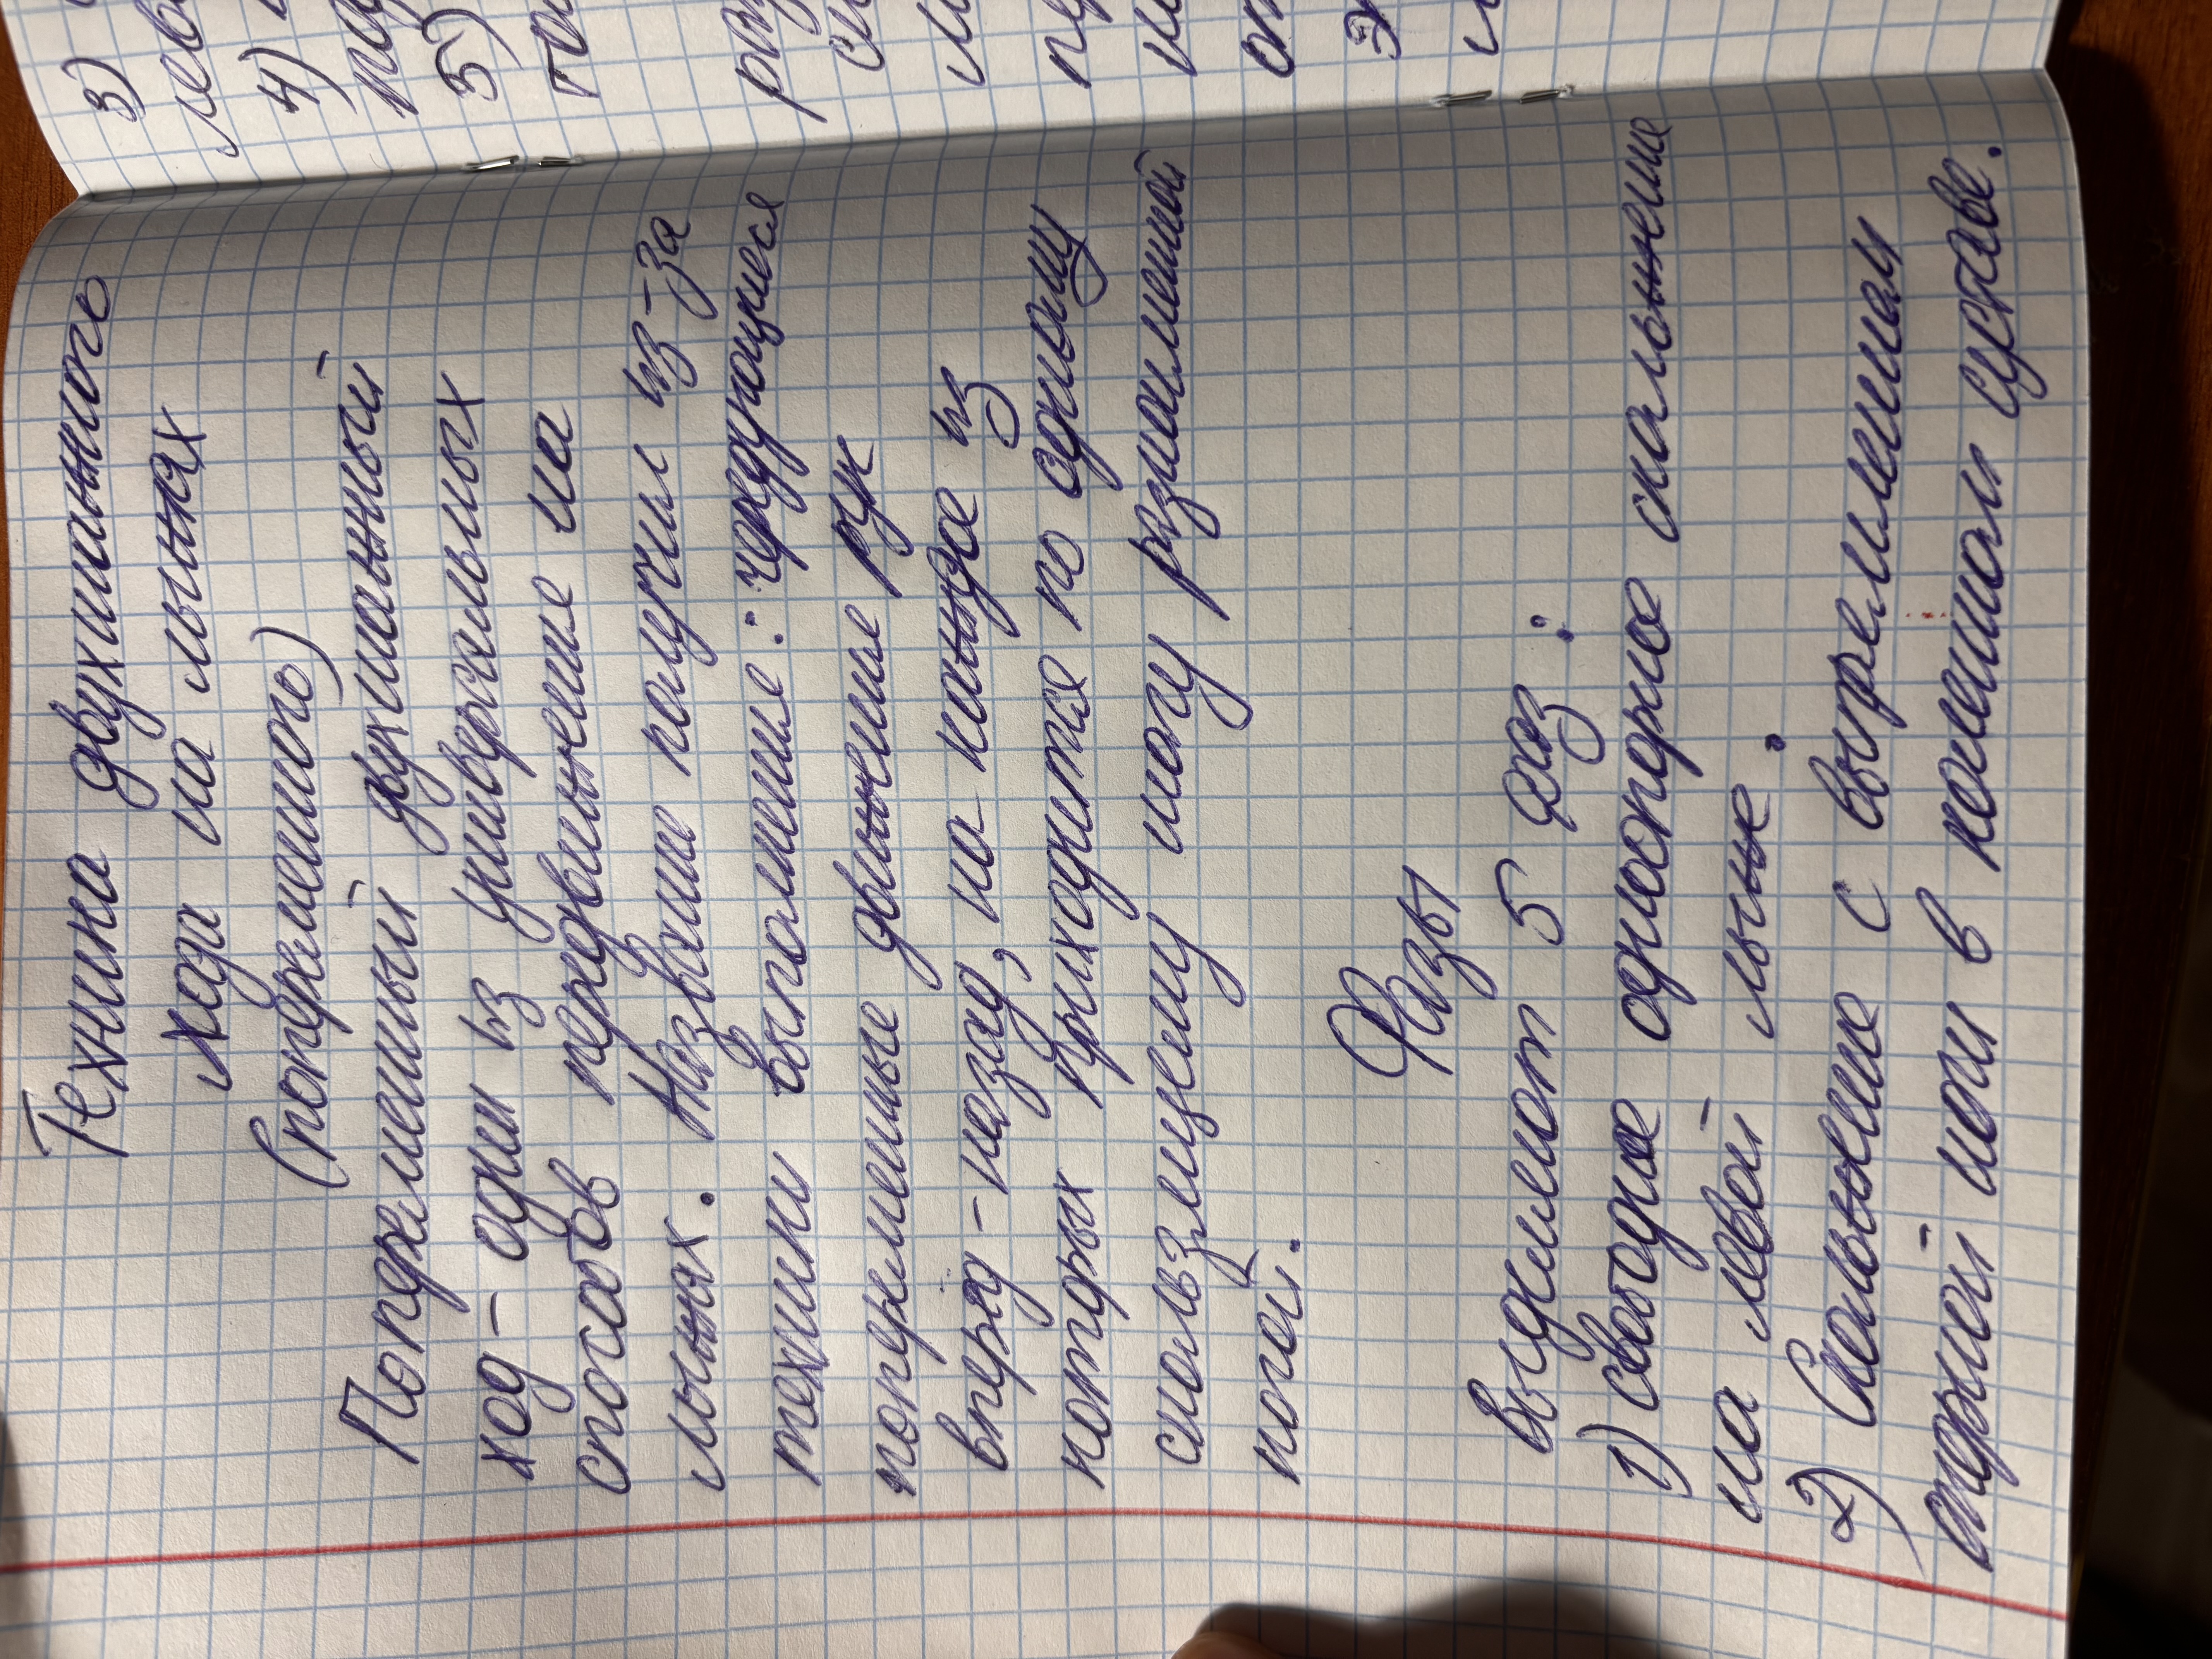 Техника двухшажного
хода на лыжах
(попеременного)
Попеременный двухшажный
ход - один из универсальных
способов передвижение на
лыжах. Название получил из-за
техники выполнение: чередующиеся
попеременные движение рук
вперёд - назад, на каждое из
которых приходится по одному
скользящему шагу разноименной
ногой.
Фазы
Выделяют 5 фаз:
1) свободное одноопорное скольжение
на левой лыже.
2) Скольжение с выпрямлением
опорной ноги в коленном суставе.
3)
лев
4)
5)